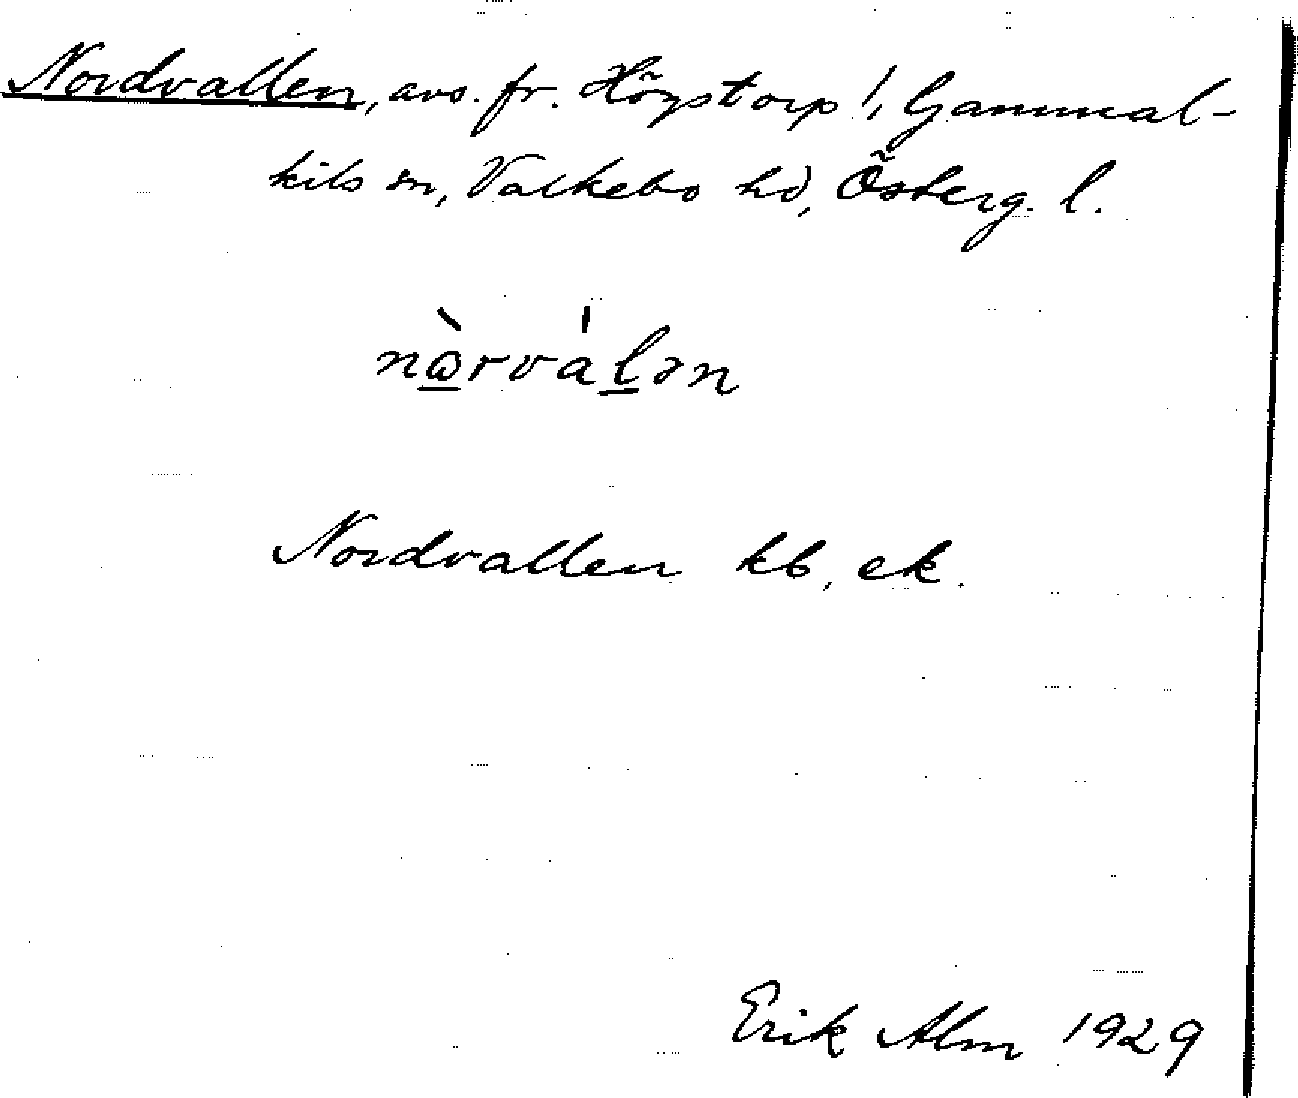 Nordvallen, avs. fr. Högstorp !, Gammal-
kils sn, Valkebo hd, Österg. l.
nɷ̀rváḻən
Nordvallen kb, ek.
Erik Alm 1929